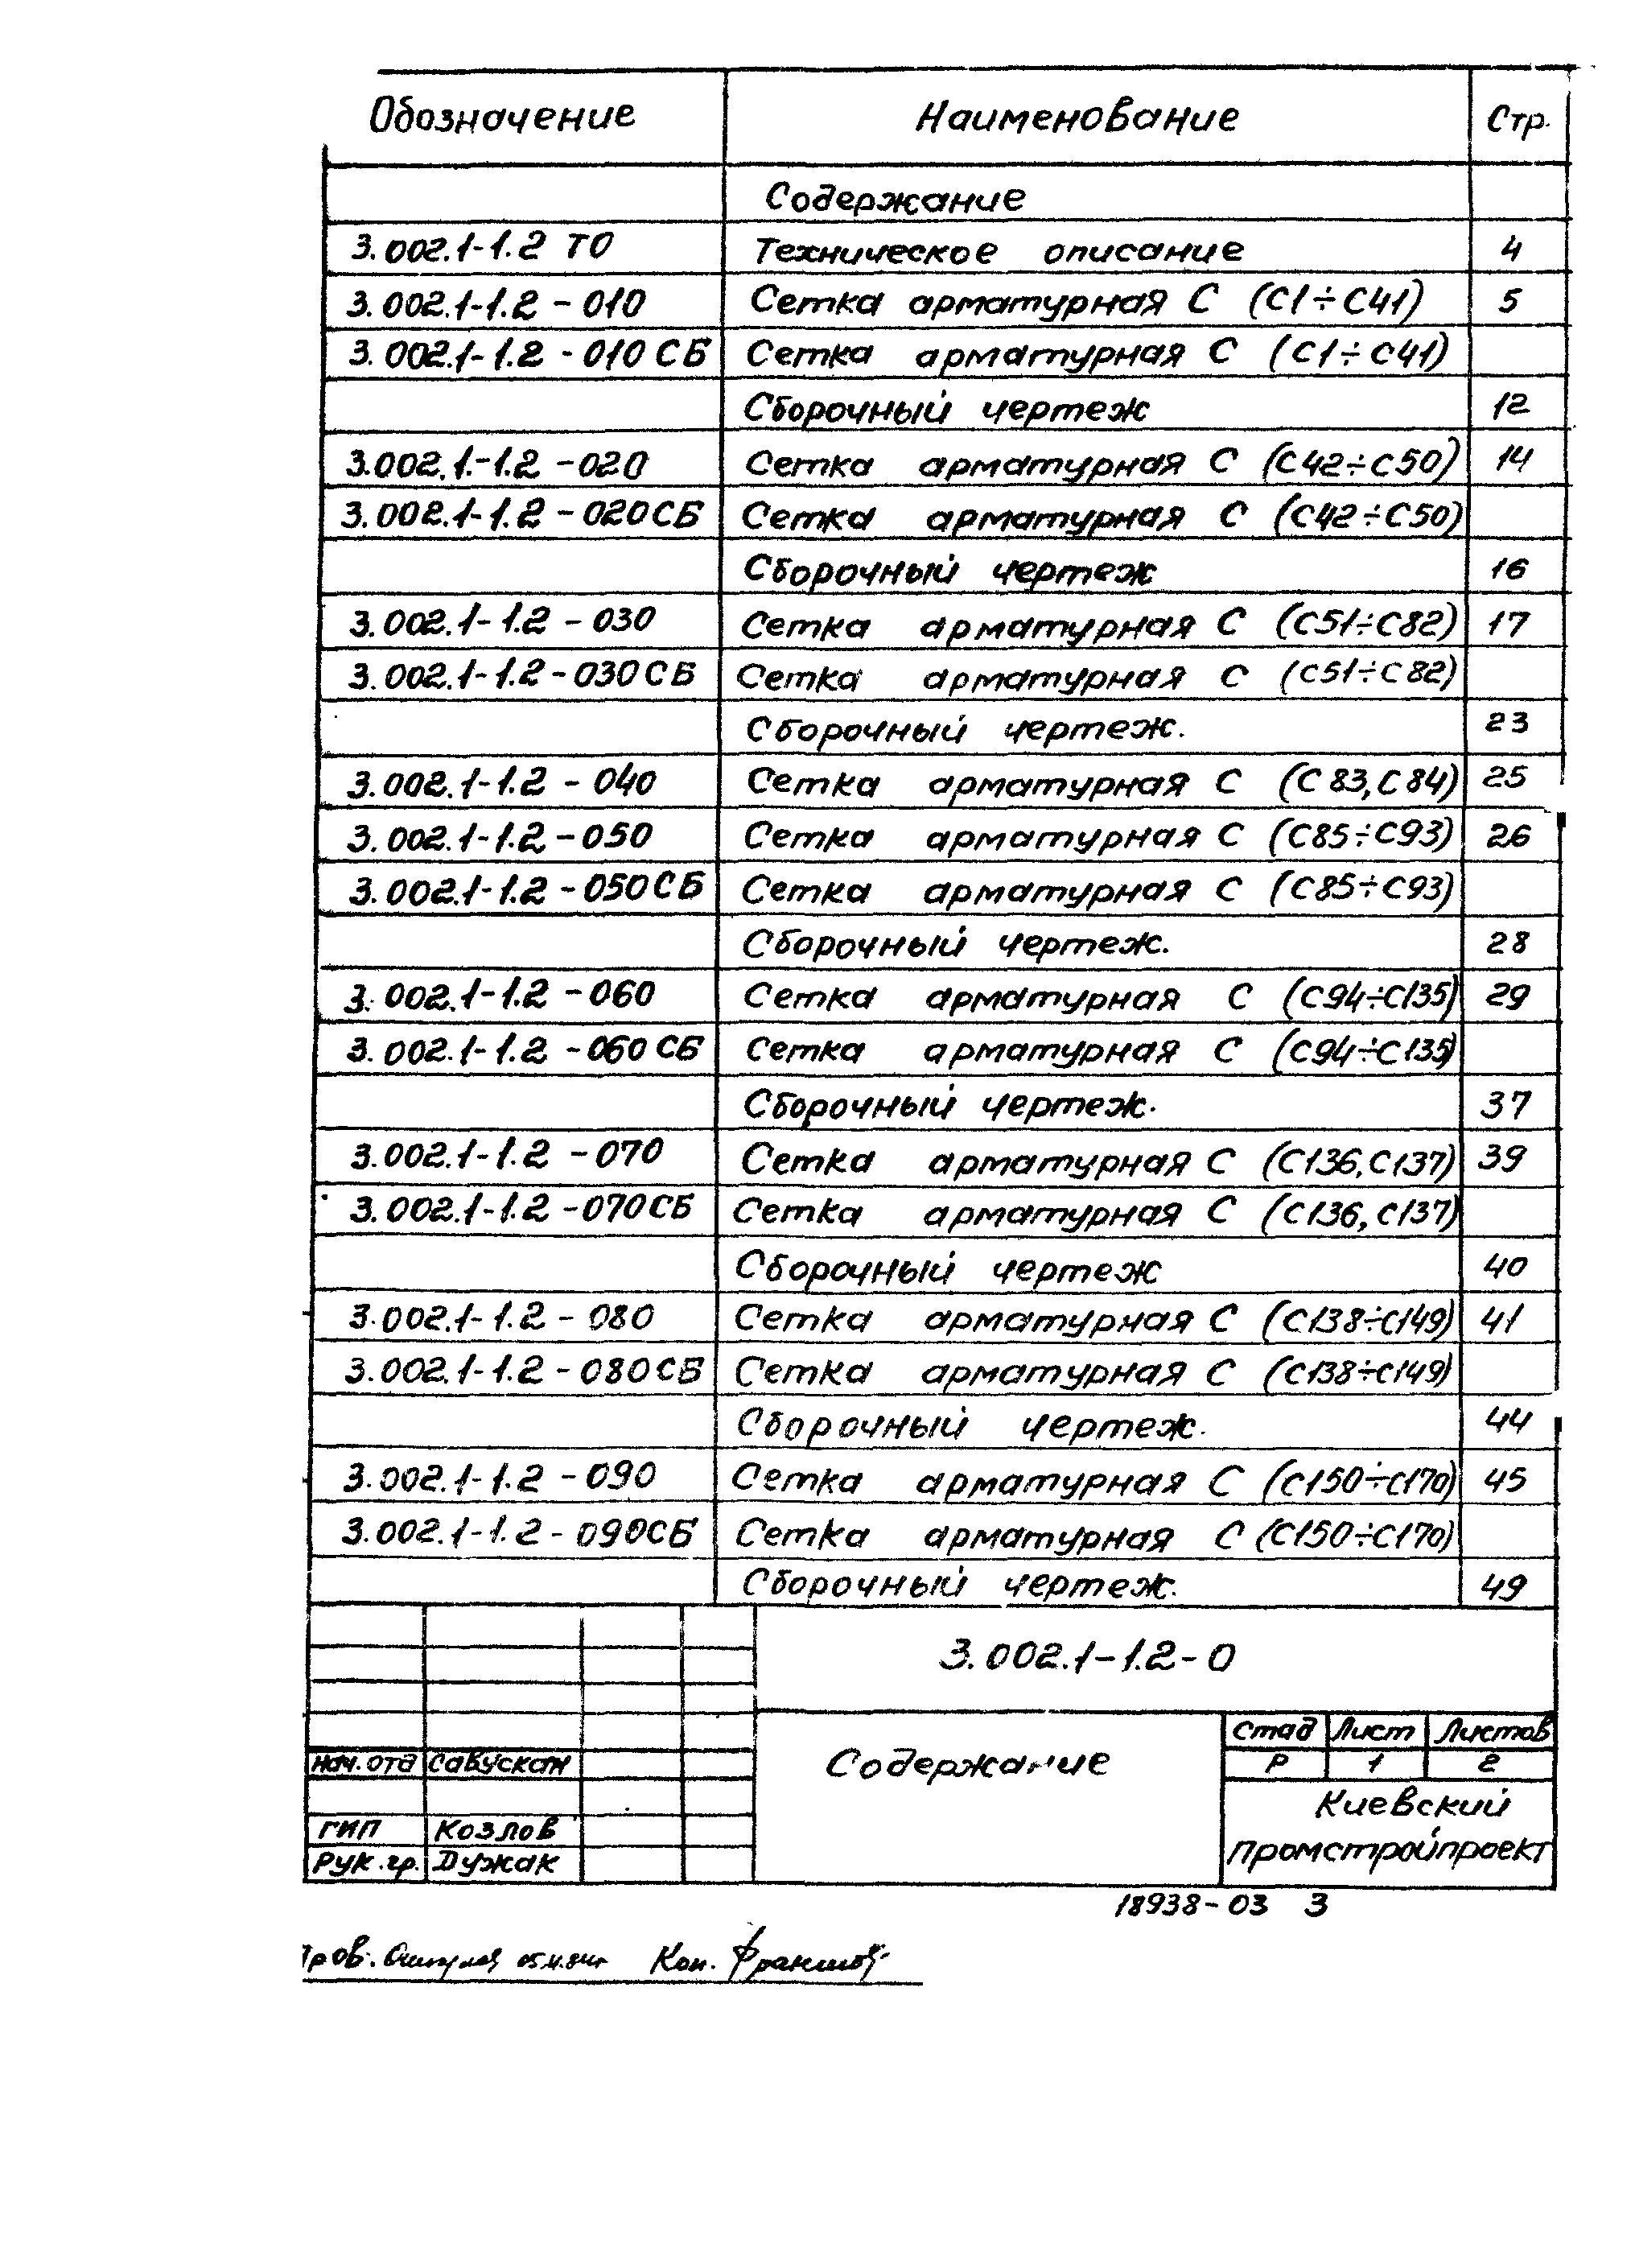 Обозначение Наименование Стр.
Содержание
3.002.1-1.2 ТО Техническое описание 4
3.002.1-1.2 - 010 Сетка арматурная С (С1÷С41) 5
3.002.1-1.2 - 010 СБ Сетка арматурная С (С1÷С41)
Сборочный чертеж 12
3.002.1.-1.2 - 020 Сетка арматурная С (С42÷С50) 14
3.002.1-1.2 - 020СБ Сетка арматурная С (С42÷С50)
Сборочный чертеж 16
3.002.1-1.2 - 030 Сетка арматурная С (С51÷С82) 17
3.002.1-1.2-030СБ Сетка арматурная С (С51÷С82)
Сборочный чертеж. 23
3.002.1-1.2 - 040 Сетка арматурная С (С83, С84) 25
3.002.1-1.2 - 050 Сетка арматурная С (С85÷С93) 26
3.002.1-1.2 - 050СБ Сетка арматурная С (С85÷С93)
Сборочный чертеж. 28
3.002.1-1.2 - 060 Сетка арматурная С (С94÷С135) 29
3.002.1-1.2 - 060 СБ Сетка арматурная С (С94÷С135)
Сборочный чертеж. 37
3.002.1-1.2 - 070 Сетка арматурная С (С136, С137) 39
3.002.1-1.2 - 070СБ Сетка арматурная С (С136, С137)
Сборочный чертеж 40
3.002.1-1.2 - 080 Сетка арматурная С (С138÷С149) 41
3.002.1-1.2 - 080СБ Сетка арматурная С (С138÷С149)
Сборочный чертеж. 44
3.002.1-1.2 - 090 Сетка арматурная С (С150÷С170) 45
3.002.1-1.2 - 090СБ Сетка арматурная С (С150÷С170)
Сборочный чертеж. 49
3.002.1-1.2-0
Стад Лист Листов
Нач. отд Савускан Содержание Р 1 2
Киевский
ГИП Козлов
промстройпроект
Рук. гр. Дужак
18938-03 3
Пров. Кон.